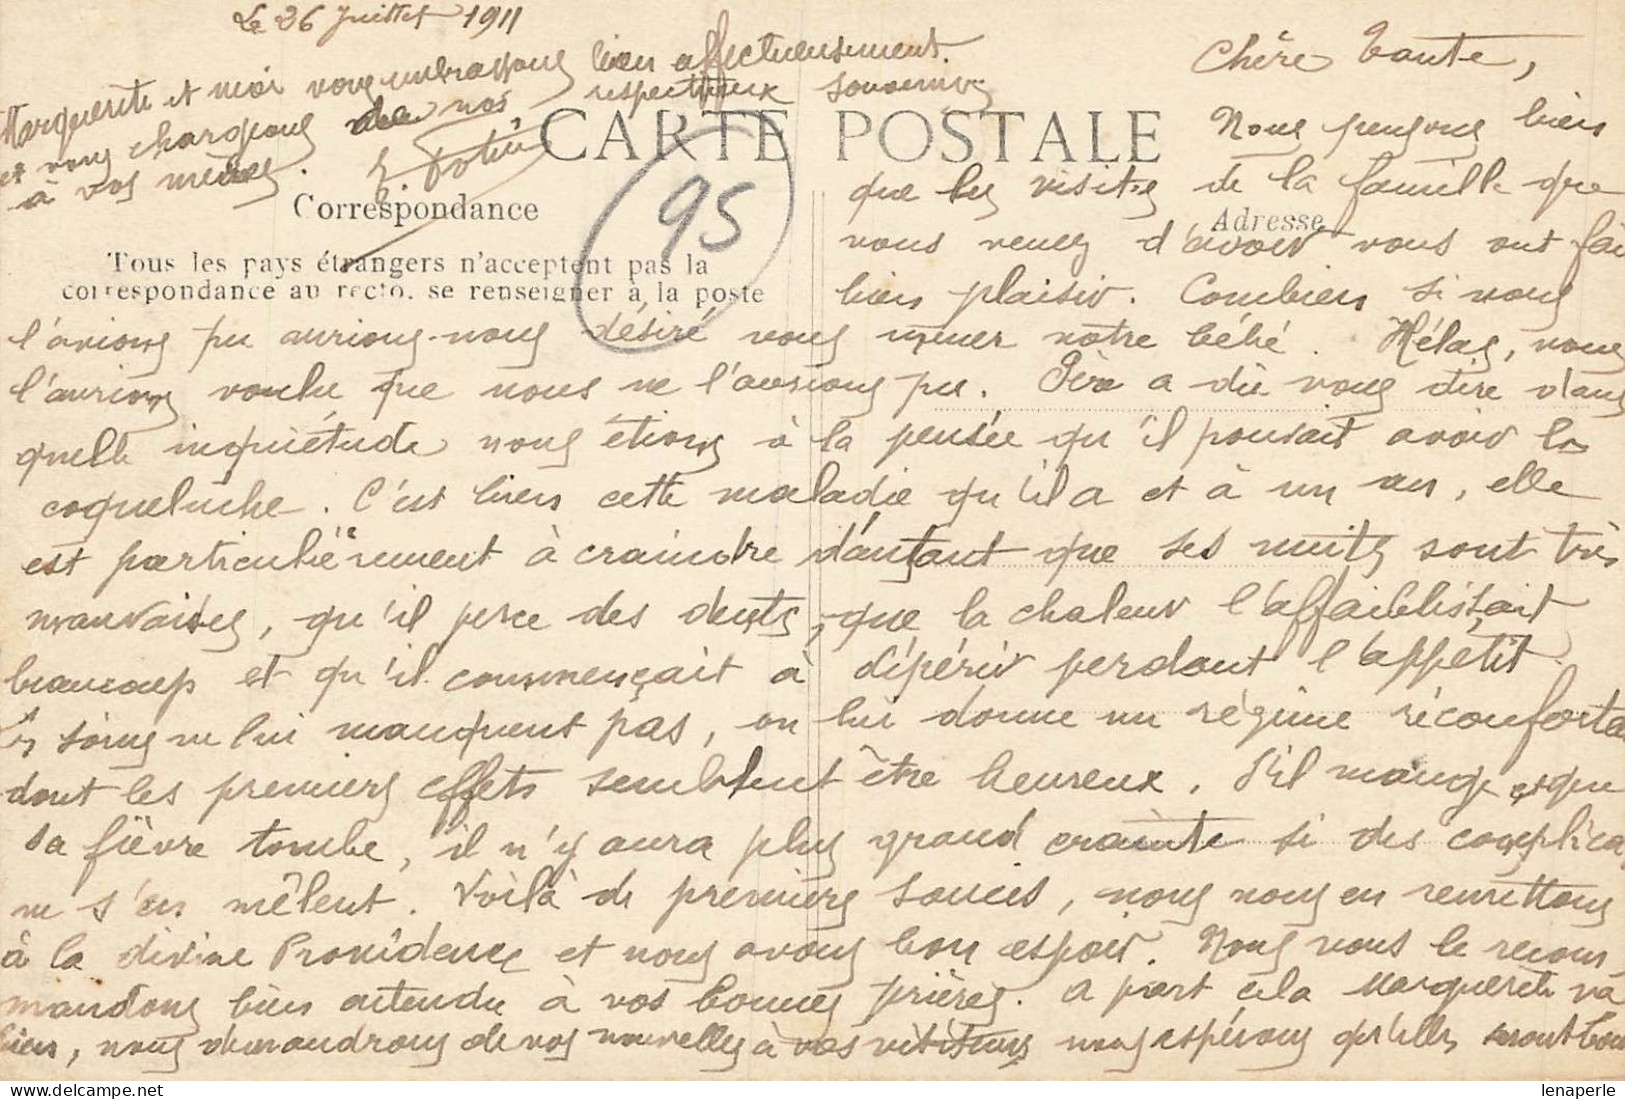 Le 26 Juillet 1911
Chère Tante,
Nous pensons bien
que les visites de la famille que
vous venez d'avoir vous ont fai
bien plaisir. Combien si nous
l'avions pu aurions-nous désiré vous mener notre bébé. Hélas, nous
l'aurions voulu que nous ne l'aurions pu. Père a dû vous dire dans
quelle inquiétude nous étions à la pensée qu'il pouvait avoir la
coqueluche. C'est bien cette maladie qu'il a et à un an, elle
est particulièrement à craindre d'autant que ses nuits sont très
mauvaises, qu'il perce des dents, que la chaleur l'affaiblissait
beaucoup et qu'il commençait à dépérir perdant l'appétit.
Les soins ne lui manquent pas, on lui donne un régime réconforta
dont les premiers effets semblent être heureux. S'il mange et que
sa fièvre tombe, il n'y aura plus grand crainte si des complica
ne s'en mêlent. Voilà de premiers soucis, nous nous en remettons
à la divine Providence et nous avons bon espoir. Nous vous le recom
mandons bien attendu à vos bonnes prières. A part cela Marguerite va
bien, nous demandrons de vos nouvelles à vos visiteurs nous espérons qu'elles seront bon
Marguerite et moi vous embrassons bien affectueusement
et vous chargeons de nos respectueux souvenirs
à vos mères.
CARTE POSTALE
95
Correspondance
Adresse
Tous les pays étrangers n'acceptent pas la
correspondance au recto, se renseigner à la poste
lenaperle